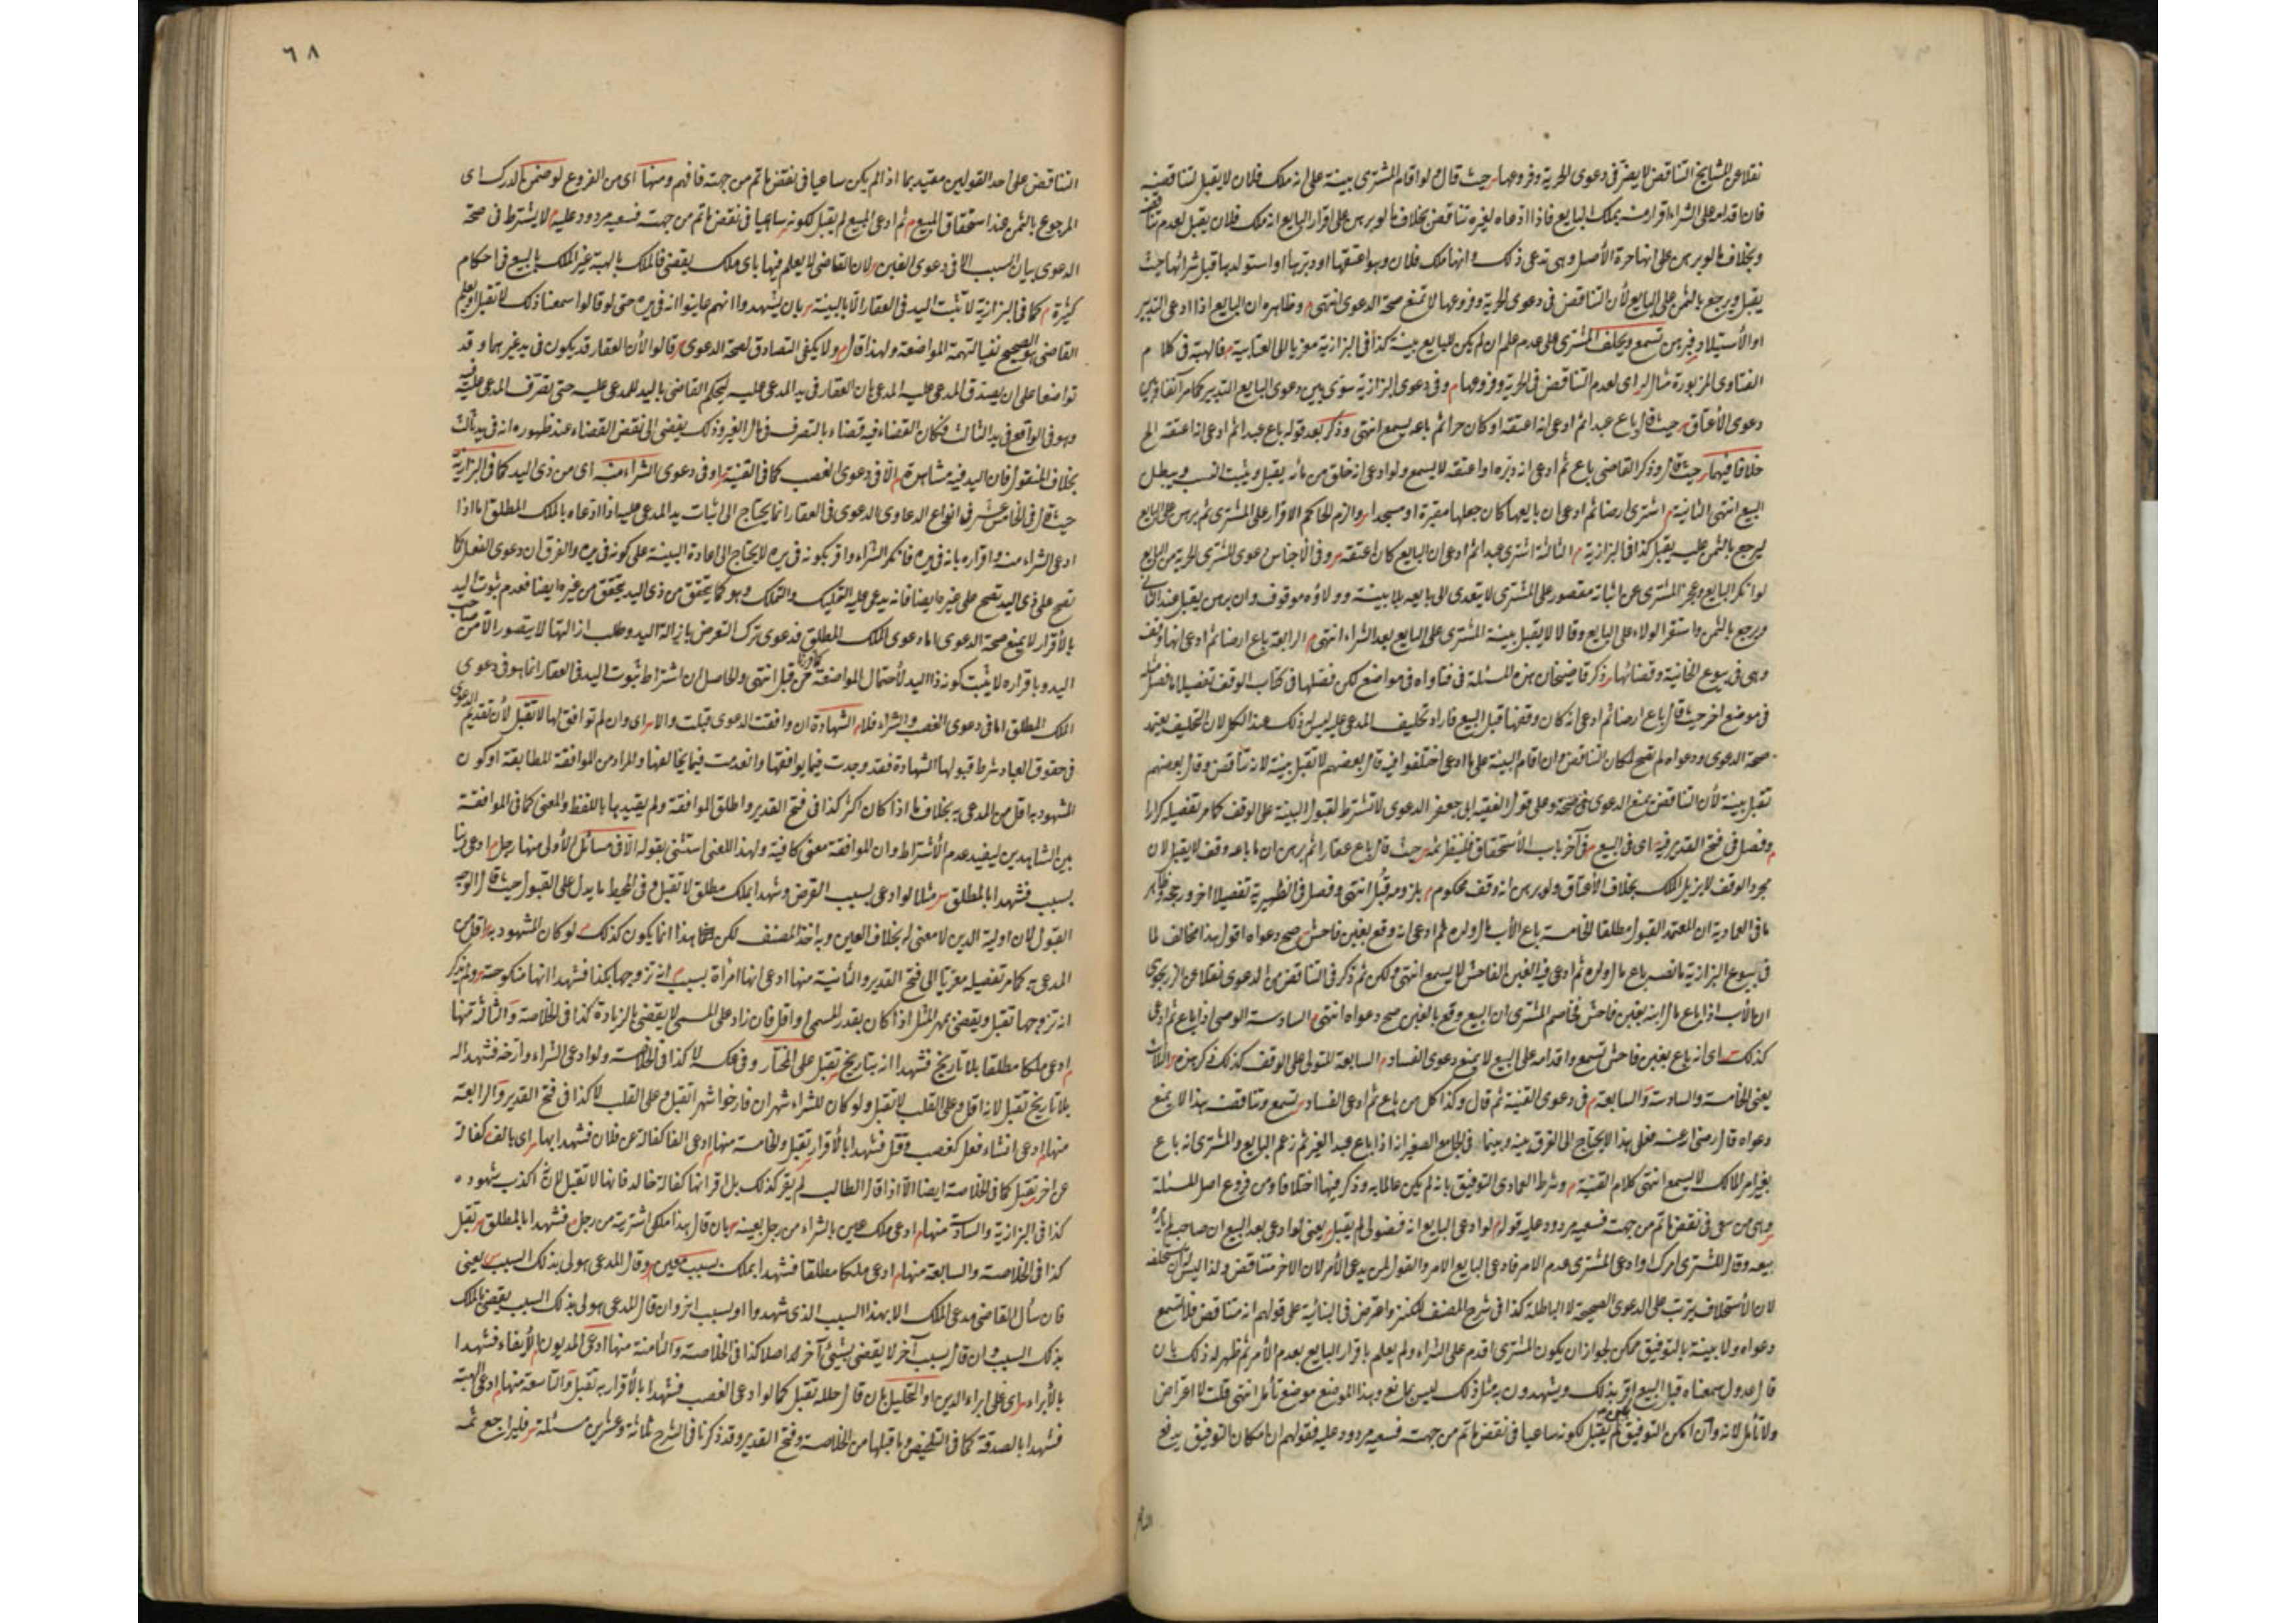 نقلا عن المشايخ التناقض لا يضر في دعوى الحرية وفروعها حيث قال لو اقام المشترى بينة على انه ملك فلان لا يقبل لتناقضه
فان اقدامه على الشراء اقرار منه بملك البايع فاذا ادعاه لغيره تناقض بخلاف ما لو برهن على اقرار البايع انه ملك فلان يقبل لعدم تناقض
وبخلاف ما لو برهن على انها حرة الأصل وهى تدعى ذلك و انها ملك فلان وهو اعتقها او دبرها او استولدها قبل شرائها حيث
يقبل ويرجع بالثمن على البايع لأن التناقض في دعوى الحرية وفروعها لا تمنع صحة الدعوى انتهى وظاهره ان البايع اذا ادعى التدبير
او الأستيلاد فبرهن تسمع ويحلف المشترى على عدم علم ان لم يكن للبايع بينة كذا في البزازية معزيا الى العتابية فالهبة في كلام
الفتاوى المزبورة مثال اى لعدم التناقض في الحرية وفروعها وفى دعوى البزازية سوى بين دعوى البايع التدبير كما مر آنفا وبين
دعوى الأعتاق حيث قال باع عبدا ثم ادعى انه اعتقه او كان حرا ثم باعه يسمع انتهى وذكر بعد قوله باع عبدا ثم ادعى انه اعتقه الخ
خلافا فيها حيث قال وذكر القاضى باع ثم ادعى انه دبره او اعتقه لا يسمع ولو ادعى انه خلق من مائه يقبل ويثبت النسب ويبطل
البيع انتهى الثانية اشترى ارضا ثم ادعى ان بايعها كان جعلها مقبرة او مسجدا والزم الحاكم الاقرار على المشترى ثم برهن على البايع
ليرجع بالثمن عليه يقبل كذا في البزازية الثالثة اشترى عبدا ثم ادعى ان البايع كان اعتقه وفى الأجناس دعوى المشترى الحرية من البايع
لو انكر البايع وعجز المشترى عن اثباته مقصور على المشترى لا يتعدى الى بايعه بلا بينة وولاؤه موقوف وان برهن يقبل عند الثانى
ويرجع بالثمن واستقر الولاء على البايع وقالا لا يقبل بينة المشترى على البايع بعد الشراء انتهى الرابعة باع ارضا ثم ادعى انها وقف
وهى في بيوع الخانية وقضائها ذكر قاضيخان هذه المسئلة في فتاواه في مواضع لكن فصلها في كتاب الوقف تفصيلا
في موضع اخر حيث قال باع ارضا ثم ادعى انه كان وقفها قبل البيع فاراد تحليف المدعى عليه ليس له ذلك عند الكل لان التحليف يعتمد
صحة الدعوى ودعواه لم تصح لمكان التناقض وان اقام البينة على ما ادعى اختلفوا فيه قال بعضهم لا تقبل بينة لانه تناقض وقال بعضهم
تقبل بينة لأن التناقض يمنع الدعوى وعلى قول الفقيه ابى جعفر الدعوى لا تشترط لقبول البينة على الوقف كما مر تفصيله كرارا
وفصل في فتح القدير فيه اى في البيع في آخر باب الأستحقاق فلينظر ثمه حيث قال باع عقارا ثم برهن ان ما باعه وقف لا يقبل لان
مجرد الوقف لا يزيل الملك بخلاف الأعتاق ولو برهن انه وقف محكوم بلزومه قبل انتهى وفصل في الظهيرية تفصيلا اخر ورجحه وظاهر
ما في العمادية ان المعتمد القبول مطلقا الخامسة باع الأب مال ولده ثم ادعى انه وقع بغبن فاحش صح دعواه اقول هذا مخالف لما
في بيوع البزازية ما نصه باع مال ولده ثم ادعى فيه الغبن الفاحش لا يسمع انتهى ولكن ثم ذكر في التناقض من الدعوى نقلا عن الزرنجرى
ان الأب اذا باع مال ابنه بغبن فاحش فخاصم المشترى ان البيع وقع بالغبن صح دعواه انتهى السادسة الوصى اذا باع ثم ادعى
كذلك اى انه باع بغبن فاحش تسمع واقدامه على البيع لا يمنع دعوى الفساد السابعة المتولى على الوقف كذلك ذكر هذه الثلاث
يعنى الخامسة والسادسة والسابعة في دعوى القنية ثم قال وكذا كل من باع ثم ادعى الفساد تسمع وتناقضه بهذا لا يمنع
دعواه قال رضى الله عنه فعلى هذا لا يحتاج الى الفرق بينه وبينما في الجامع الصغير انه اذا باع عبد الغير ثم زعم البايع والمشترى انه باع
بغير امر المالك لا يسمع انتهى كلام القنية وشرط العمادى التوفيق بانه لم يكن عالما به وذكر فيها اختلافا ومن فروع اصل المسئلة
وهى من سعى في نقض ما تم من جهته فسعيه مردود عليه قوله لو ادعى البايع انه فضولى لم يقبل يعنى لو ادعى بعد البيع ان صاحبه لم يأمره
ببيعه وقال المشترى امرك او ادعى المشترى عدم الامر فادعى البايع الامر والقول لمن يدعى الأمر لان الاخر متناقض ولذا ليس له ان يستحلفه
لان الأستحلاف يترتب على الدعوى الصحيحة لا الباطلة كذا في شرح المصنف للكنز واعترض في البنائية على قولهم انه متناقض فلا تسمع
دعواه ولا بينة بالتوفيق ممكن لجواز ان يكون المشترى اقدم على الشراء ولم يعلم باقرار البايع بعدم الأمر ثم ظهر له ذلك بان
قال عدول سمعناه قبل البيع اقر بذلك ويشهدون به مثل ذلك ليس بمانع وهذا الموضع موضع تأمل انتهى قلت لا اعتراض
ولا تأمل لانه وان امكن التوفيق لم يقبل لكونه ساعيا في نقض ما تم من جهته فسعيه مردود عليه فقولهم ان امكان التوفيق يدفع
٦٨
التناقض على احد القولين مقيد بما اذا لم يكن ساعيا في نقض ما تم من جهته فافهم ومنها اى من الفروع لو ضمن الدرك اى
الرجوع بالثمن عند استحقاق المبيع ثم ادعى المبيع لم يقبل لكونه ساعيا في نقض ما تم من جهته فسعيه مردود عليه لا يشترط في صحة
الدعوى بيان السبب الا في دعوى العين لان القاضى لا يعلم فيها باى ملك يقضى فالملك بالهبة غير الملك بالبيع في احكام
كثيرة كما في البزازية لا تثبت اليد في العقار الا بالبينة بان يشهدوا انهم عاينوا انه في يده حتى لو قالوا سمعنا ذلك لا تقبل او يعلم
القاضى هو الصحيح نفيا لتهمة المواضعة ولهذا قال ولا يكفى التصادق لصحة الدعوى قالوا لأن العقار قد يكون في يد غيرهما وقد
تواضعا على ان يصدق المدعى عليه المدعى بان العقار في يد المدعى عليه ليحكم القاضى باليد للمدعى عليه حتى يتصرف المدعى عليه فيه
وهو في الواقع في يد الثالث فكان القضاء فيه قضاء بالتصرف في مال الغير وذلك يفضى الى نقض القضاء عند ظهوره انه في يد ثالث
بخلاف المنقول فان اليد فيه مشاهدة الا في دعوى الغصب كما في القنية او في دعوى الشراء منه اى من ذى اليد كما في البزازية
حيث قال في الخامس عشر في انواع الدعاوى الدعوى في العقار انما يحتاج الى اثبات يد المدعى عليه اذا ادعاه بالملك المطلق اما اذا
ادعى الشراء منه واقراره بانه في يده فانكر الشراء واقر بكونه في يده لا يحتاج الى اعادة البينة على كونه في يده والفرق ان دعوى الفعل كما
تصح على ذى اليد تصح على غيره ايضا فانه يدعى عليه التمليك والتملك وهو كما يتحقق من ذى اليد يتحقق من غيره ايضا فعدم ثبوت اليد
بالأقرار لا يمنع صحة الدعوى اما دعوى الملك المطلق فدعوى ترك التعرض بازالة اليد وطلب ازالتها لا يتصور الا من صاحب
اليد وباقراره لا يثبت كونه ذا اليد لأحتمال المواضعة من قبل انتهى والحاصل ان اشتراط ثبوت اليد في العقار انما هو في دعوى
الملك المطلق اما في دعوى الغصب والشراء فلا الشهادة ان وافقت الدعوى قبلت والا اى وان لم توافق لها لا تقبل لأن تقديم الدعوى
في حقوق العباد شرط قبولها الشهادة فقد وجدت فيما يوافقها وانعدمت فيما يخالفها والمراد من الموافقة المطابقة او كون
المشهود به اقل من المدعى به بخلاف ما اذا كان اكثر كذا في فتح القدير واطلق الموافقة ولم يقيدها باللفظ والمعنى كما في الموافقة
بين الشاهدين ليفيد عدم الأشتراط وان الموافقة معنى كافية ولهذا المعنى استثنى بقوله الا في مسائل الأولى منها رجل ادعى دينا
بسبب فشهدا بالمطلق مثلا لو ادعى بسبب القرض وشهدا بملك مطلق لا تقبل وفى المحيط ما يدل على القبول حيث قال الوجه
القبول لان اولية الدين لا معنى له بخلاف العين وبه اخذ المصنف لكن هذا انما يكون كذلك لو كان المشهود به اقل من
المدعى به كما مر تفصيله معزيا الى فتح القدير والثانية منها ادعى انها امرأة بسبب انه تزوجها بكذا فشهدا انها منكوحته ولم يذكر
انه تزوجها تقبل ويقضى بمهر المثل اذا كان بقدر المسمى او اقل فان زاد على المسمى لا يقضى بالزيادة كذا في الخلاصة والثالثة منها
ادعى ملكا مطلقا بلا تاريخ فشهدا انه بتاريخ تقبل على المختار وفى عكسه لا كذا في الخلاصة ولو ادعى الشراء وارخه فشهدا له
بلا تاريخ تقبل لانه اقل وعلى القلب لا تقبل ولو كان للشراء شهران فارخوا شهرا تقبل وعلى القلب لا كذا في فتح القدير والرابعة
منها ادعى انشاء فعل كغصب وقتل فشهدا بالأقرار تقبل والخامسة منها ادعى الفا كفالة عن فلان فشهدا بها اى بالف كفالة
عن اخر تقبل كما في الخلاصة ايضا الا اذا قال الطالب لم يقر كذلك بل اقر انها كفالة خالد فانها لا تقبل لانه اكذب شهوده
كذا في البزازية والسادسة منها ادعى ملك عين بالشراء من رجل بعينه بان قال هذا ملكى اشتريته من رجل فشهدا بالمطلق تقبل
كذا في الخلاصة والسابعة منها ادعى ملكا مطلقا فشهدا بملك بسبب معين وقال المدعى هو لى بذلك السبب يعنى
فان سأل القاضى مدعى الملك الابهذا السبب الذى شهدوا او بسبب اخر وان قال المدعى هو لى بذلك السبب يقضى بالملك
بذلك السبب وان قال بسبب آخر لا يقضى بشئ آخر له اصلا كذا في الخلاصة والثامنة منها ادعى المديون الأيفاء فشهدا
بالأبراء اى على ابراء الدين او التحليل بان قال حلله تقبل كما لو ادعى الغصب فشهدا بالأقرار به تقبل والتاسعة منها ادعى الهبة
فشهدا بالصدقة كما في التلخيص وما قبلها من الخلاصة وفتح القدير وقد ذكرنا في الشرح ثمانة وعشرين مسئلة فليراجع ثمه